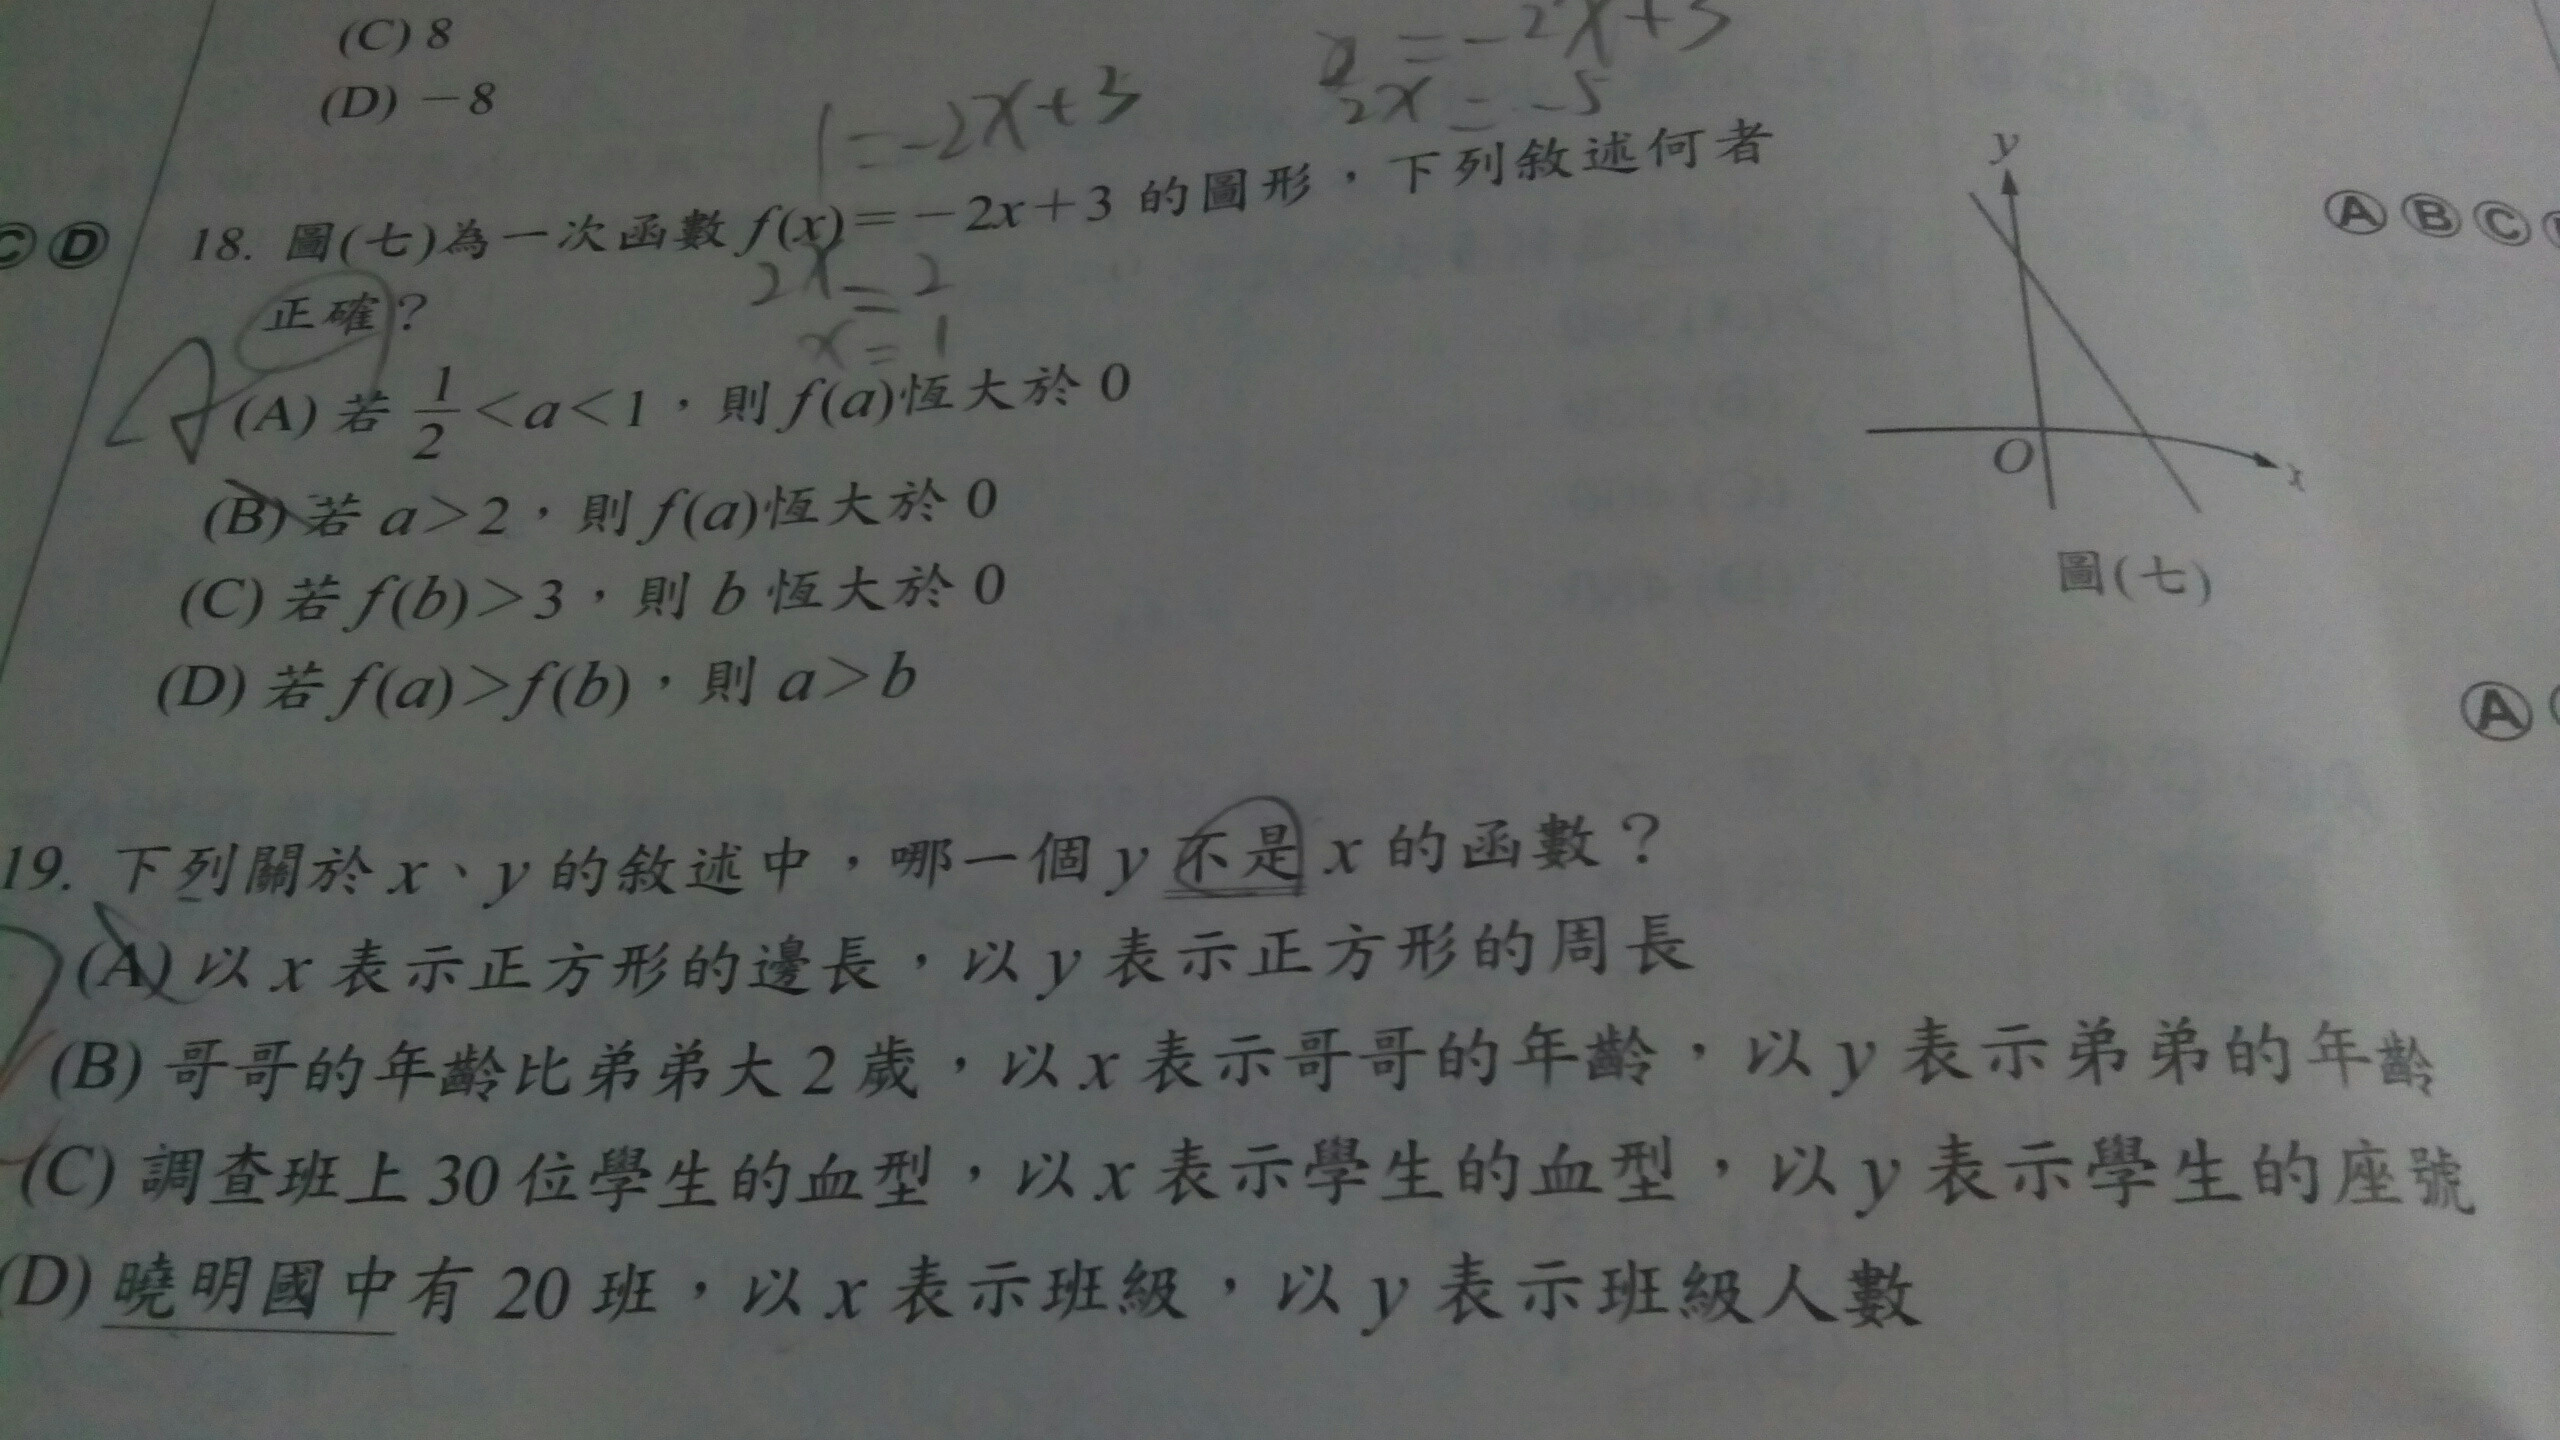 (C) 8
(D) －8
= －2x+3
2x = －5
1=－2x+3
18. 圖(七)為一次函數 f(x)=－2x+3 的圖形，下列敘述何者
正確？
2x = 2
x = 1
(A) 若 1/2 <a<1，則 f(a)恆大於 0
(B) 若 a>2，則 f(a)恆大於 0
(C) 若 f(b)>3，則 b 恆大於 0
(D) 若 f(a)>f(b)，則 a>b
y
O
x
圖(七)
C D
A B C
A
19. 下列關於 x、y 的敘述中，哪一個 y 不是 x 的函數？
(A) 以 x 表示正方形的邊長，以 y 表示正方形的周長
(B) 哥哥的年齡比弟弟大 2 歲，以 x 表示哥哥的年齡，以 y 表示弟弟的年齡
(C) 調查班上 30 位學生的血型，以 x 表示學生的血型，以 y 表示學生的座號
(D) 曉明國中有 20 班，以 x 表示班級，以 y 表示班級人數